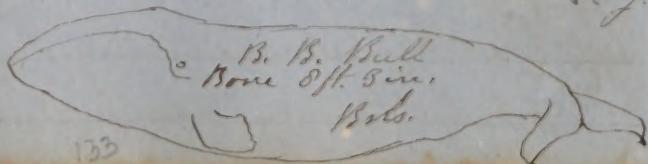 B. B. Bull
Bone 8 ft. 3 in.
Brls.
133